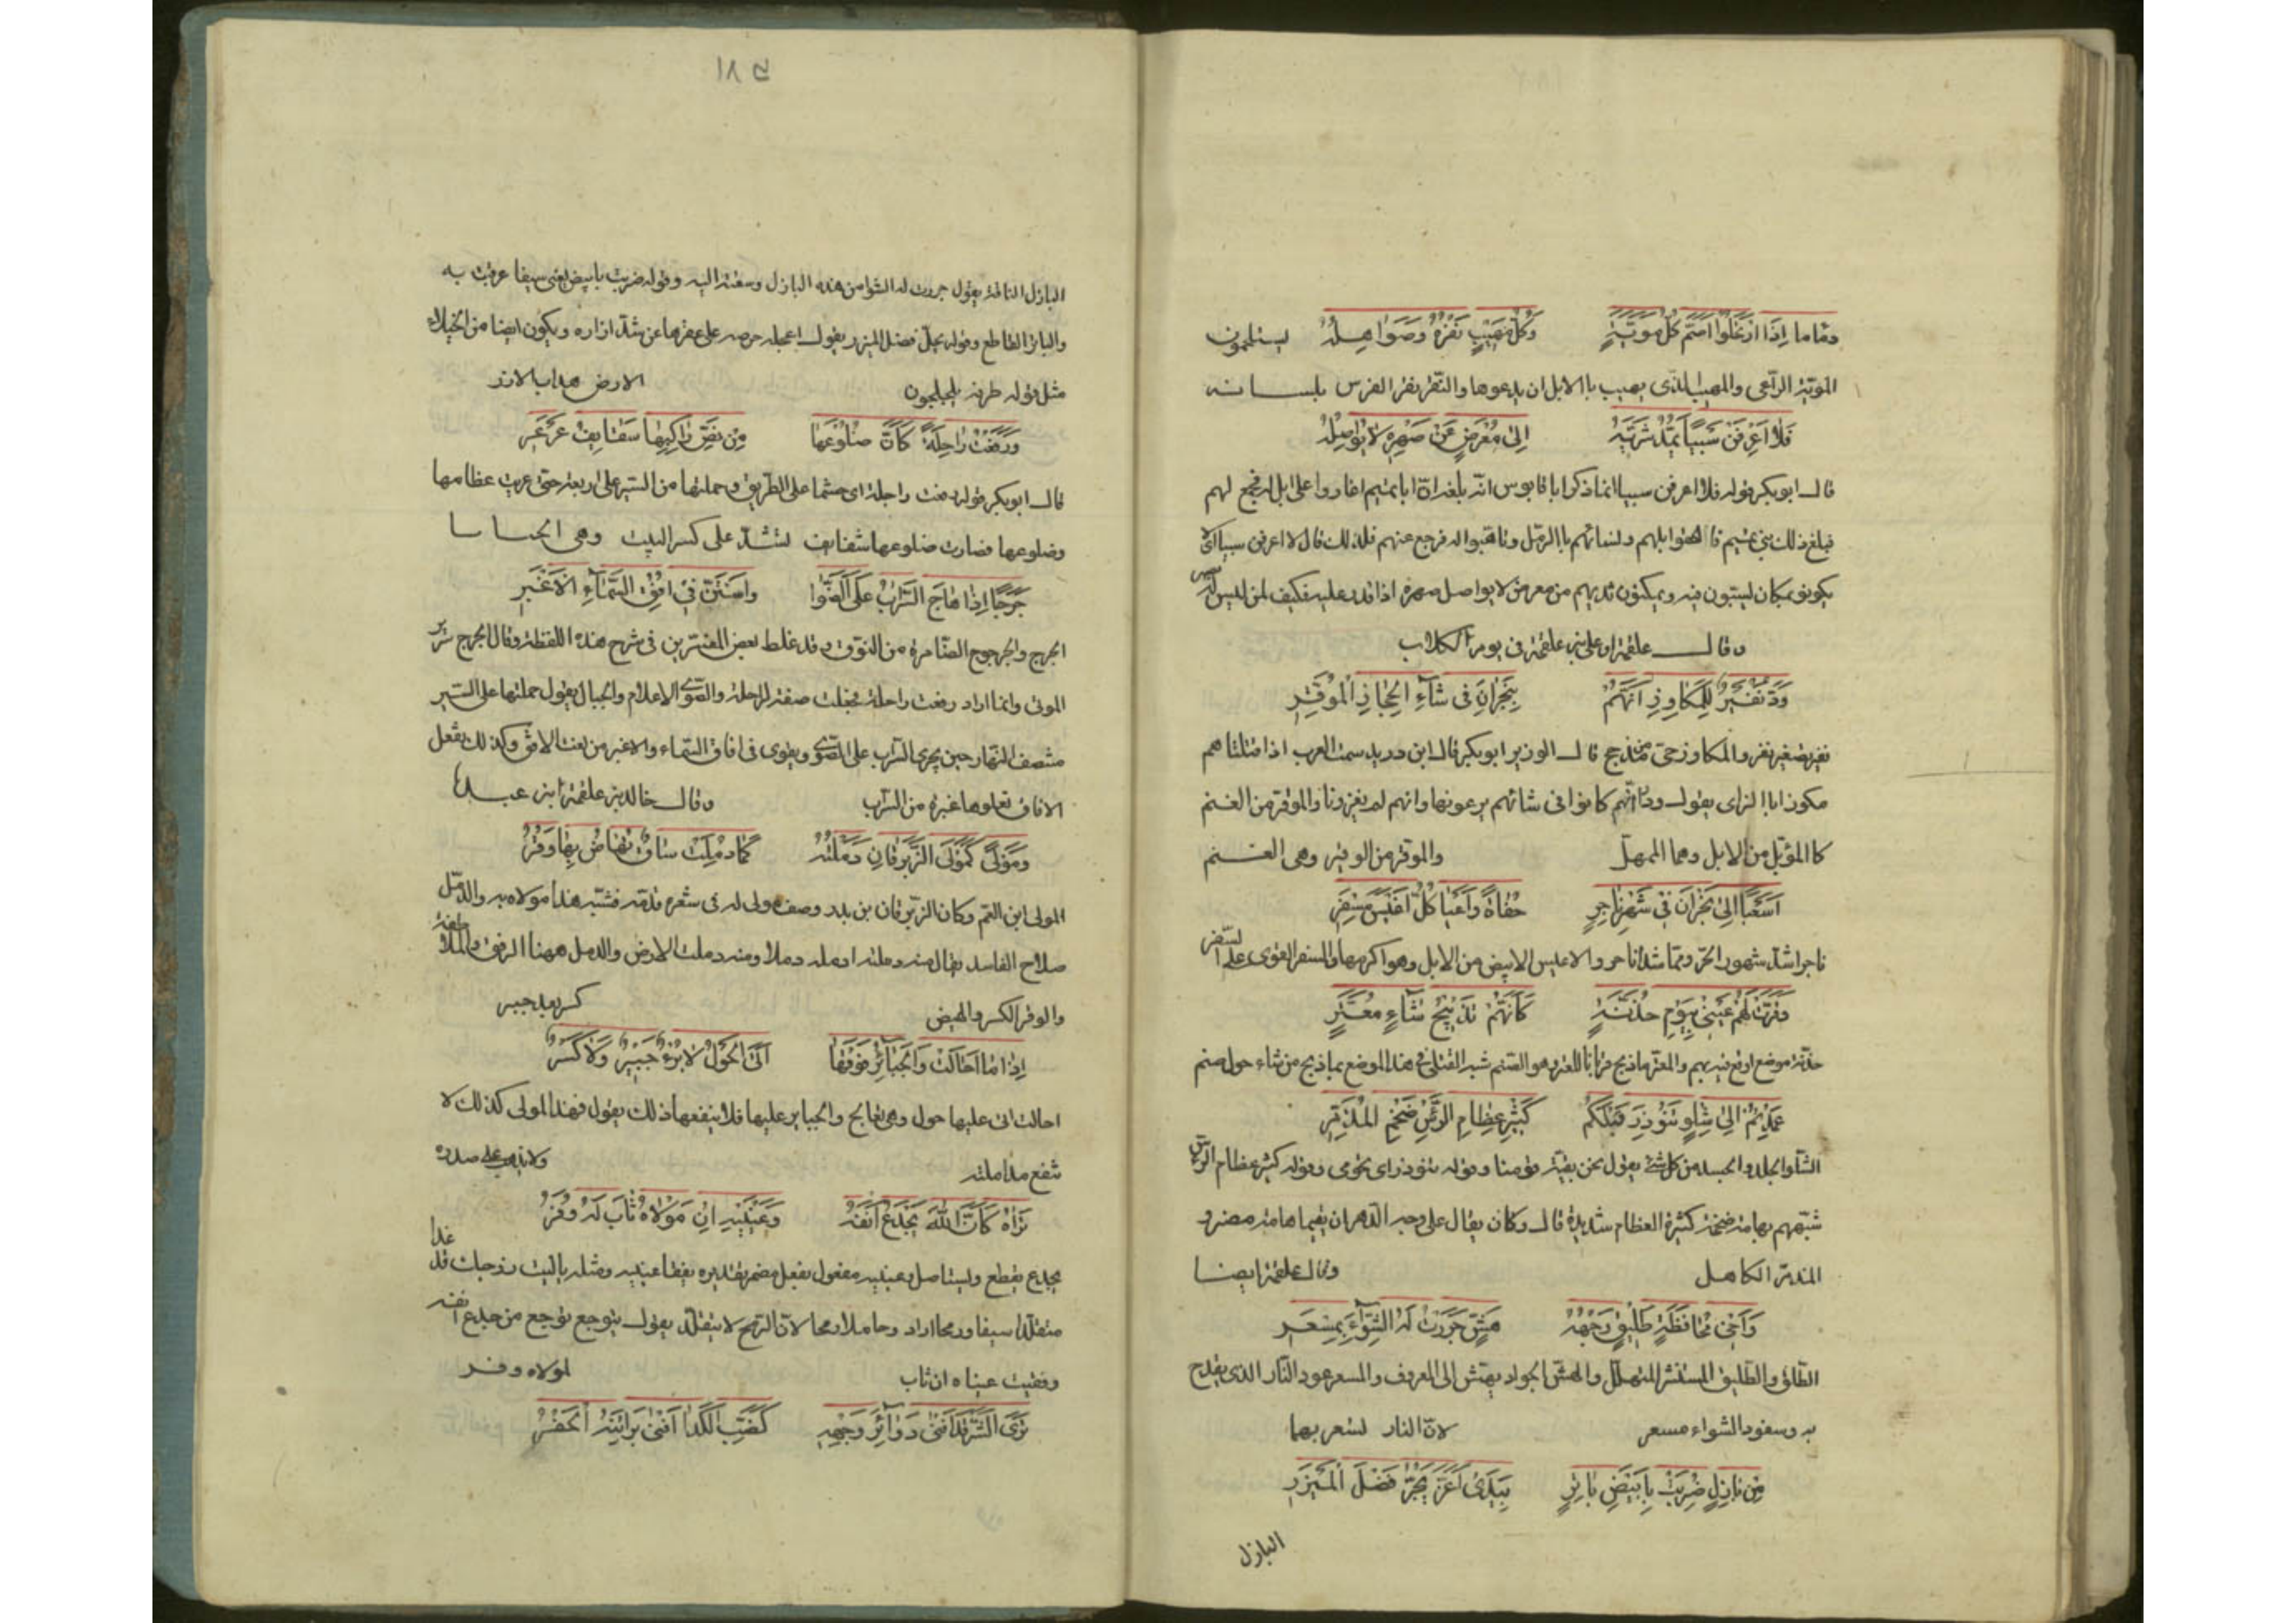 وقاما اذا ارتحلوا اصم كل موية وكل مهيب نقره وصواهله يستلمون
المويه الراعى والمهيب الذى يهيب باالابل ان يدعوها والنقر نقر الفرس بلسانه
فلا اعرفن سبيا تمد ثديه الى معرض عن صهره لا يواصله
قال ابو بكر قوله فلا اعرفن سبيا انما ذكر ابا قابوس انه بلغه ان ابا تميم اغاروا على ابل له فجمع لهم
فبلغ ذلك بنى تميم فا ابلهم ولنسائهم باالرمل وتاهبوا له فرجع عنهم فلذلك قال لا اعرفن سبيا اى لا
يكونو بمكان ليسبون فيه ويمدون ثديهم من معرض لا يواصل صهره اذا قدر عليه فكيف لمن ليس له صهر
وقال علقمة او على بن علقمة فى يوم الكلاب
ود نفير للمكاور انهم بنجران فى شاء الحجاز الموقر
نفير تصغير نفر والمكاور حى من مذحج قال الوزير ابو بكر قال ابن دريد سمت العرب
مكورا باالراى يقول ود انهم كانوا فى شائهم يرعونها وانهم لم يغزونا والموقر من الغنم
كاالمؤبل من الابل وهما المهمل والموقر من الوقير وهى الغنم
اسعيا الى نجران فى شهر ناجر حفاة واعيا كل اعيس مسفر
ناجر اشد شهور الحر والاعيس الابيض من الابل وهو اكرمها والمسفر القوى على السفر
وقرت لهم عينى بيوم حذنة كانهم تذبيح شاء معتر
حذنة موضع اوقع فيه بهم والمعتر ماذبح قربانا للعتر وهو الصنم شبه القتلى فى هذا الموضع بما ذبح من شاء حول صنم
عمدتم الى شلو تنوذر قبلكم كثير عظام الراس ضخم المذمر
الشلو الجلد والجسد من كل شئ يقول نحن بقية قومنا وقوله تنوذر اى تحومى وقوله كثير عظام الراس
شبههم بهامة ضخمة كثيرة العظام شديدة قال وكان يقال على وجه الدهر ان تميما هامة مضر و
المذمر الكاهل وقال علقمة ايضا
واخى محافظة طليق وجهه هش جررت له الشواء بمسعر
الطلق والطليق المستبشر المتهلل والهش الجواد يهتش الى المعروف والمسعر عود النار الذى يقدح
به وسفود الشواء مسعر لان النار تسعر بها
من بازل ضربت بابيض باتر بيدى اغر يجر فضل الميزر
البازل
١٨٥
البازل الناقة يقول جررت له الشوا من هذه البازل وسقته اليه وقوله ضربت بابيض يعنى سيفا عرقبت به
والباتر القاطع وقوله يجر فضل الميزر يقول اعجله حرصه على عقرها عن شد ازاره ويكون ايضا من الخيلاء
مثل قوله طرفه يلحفون الارض هداب الازر
ورفعت راحلة كان ضلوعها من نص راكبها سقائف عرعر
قال ابو بكر قوله رفعت راحلة اى حشها على الطريق وحملتها من السير على اربعة حتى عريت عظامها
وضلوعها فصارت ضلوعها سقائف تشد على كسر البيت وهى
حرجا اذا هاج السراب على الصوى واستن فى افق السماء الاغبر
الحرج والحرجوج الضامرة من النوق وقد غلط بعض المفسرين فى شرح هذه اللفظة وقال الحرج سرير
الموتى وانما اراد رفعت راحلة فجعلت صفة للراحلة والصوى الاعلام والجبال يقول حملتها على السير
منتصف النهار حين يجرى السراب على الصوى ويقوى فى افاق السماء والاغبر من نعت الافق وكذلك يفعل
الافاق تعلوها غبرة من السراب وقال خالد بن علقمة ابن عبدة
ومولى كمولى الزبرقان دملته كما دملت ساق تهاض بها وقر
المولى ابن العم وكان الزبرقان بن بدر وصف مولى له فى شعره قدمه فشبه هذا مولاه به والدمل
صلاح الفاسد يقال منه دملته ادمله دملا ومنه دملت الارض والدمل ههنا الرفق
والوقر الكسر والهيض كسر بعد جبر
اذا ما احالت والجبائر فوقها اتى الحول لا برء جبير ولا كسر
احالت اتى عليها حول وهى تعالج والجباير عليها فلا ينفعها ذلك يقول فهذا المولى كذلك لا
تنفع مداملته ولا يذهب غل صدره
تراه كان الله يجدع انفه وعينيه ان مولاه ثاب له وفر
يجدع يقطع ويستاصل وعينيه مفعول بفعل مضمر تقديره يفقا عينيه ومثله ياليت زوجك قد غدا
متقلدا سيفا ورمحا اراد وحاملا رمحا لان الرمح لا يتقلد يقول يتوجع توجع من جدع انفه
وفقيت عيناه ان ثاب لمولاه وفر
ترى الشر قد افنى دوائر وجهه كضب الكدا افنى براثنه الحفر